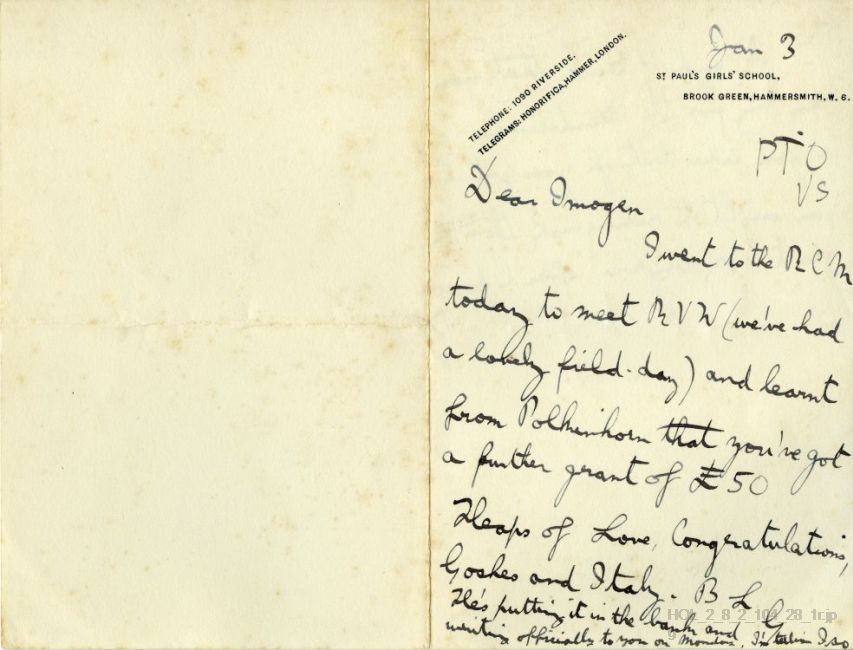 Jan 3
ST PAUL'S GIRLS' SCHOOL,
BROOK GREEN, HAMMERSMITH, W. 6.
TELEPHONE: 1090 RIVERSIDE.
TELEGRAMS: HONORIFICA, HAMMER, LONDON.
PTO
VS
Dear Imogen
I went to the RCM
today to meet RVW (we've had
a lovely field-day) and learnt
from Polkinhorn that you've got
a further grant of £50
Heaps of Love, Congratulations,
Goshes and Italy. B L G
He's putting it in the bank and
writing officially to you on Monday. I'm